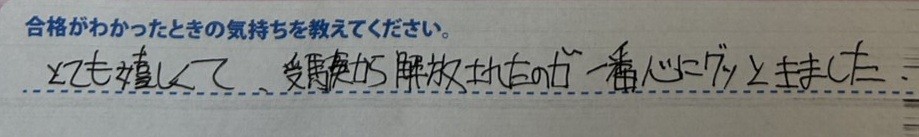 合格がわかったときの気持ちを教えてください。
とても嬉しくて、受験から解放されたのが一番心にグッときました.